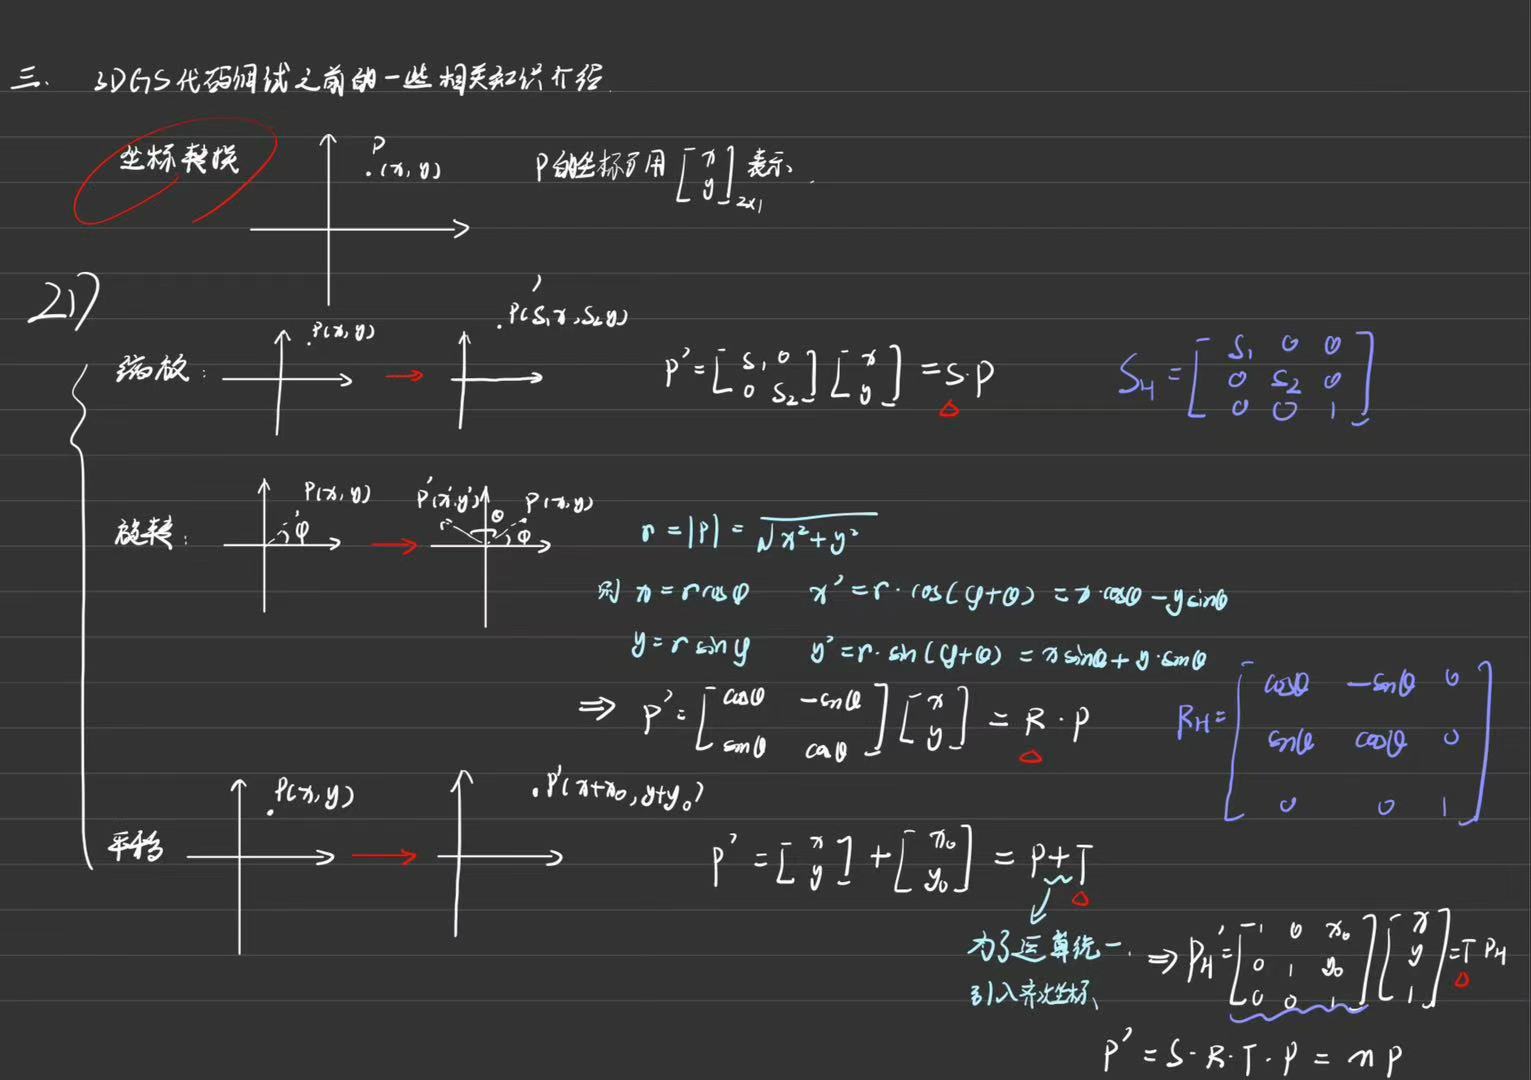 三. 3DGS代码调试之前的一些相关知识介绍.
坐标转换
P
(x, y)
P的坐标可用 [x y]2×1 表示.
缩放:
P(x, y)
P'(S₁x, S₂y)
P' = [S₁ 0; 0 S₂] [x; y] = S·P
S_H = [S₁ 0 0; 0 S₂ 0; 0 0 1]
旋转:
P(x, y)
φ
P'(x', y')
r
θ
P(x, y)
φ
r = |P| = √x²+y²
则 x = r cosφ x' = r·cos(φ+θ) = x·cosθ - y sinθ
y = r sinφ y' = r·sin(φ+θ) = x sinθ + y·cosθ
⇒ P' = [cosθ -sinθ; sinθ cosθ] [x; y] = R·P
R_H = [cosθ -sinθ 0; sinθ cosθ 0; 0 0 1]
平移
P(x, y)
P'(x+x₀, y+y₀)
P' = [x; y] + [x₀; y₀] = P+T
为了运算统一.
引入齐次坐标、
⇒ P_H' = [1 0 x₀; 0 1 y₀; 0 0 1] [x; y; 1] = T P_H
P' = S·R·T·P = m P